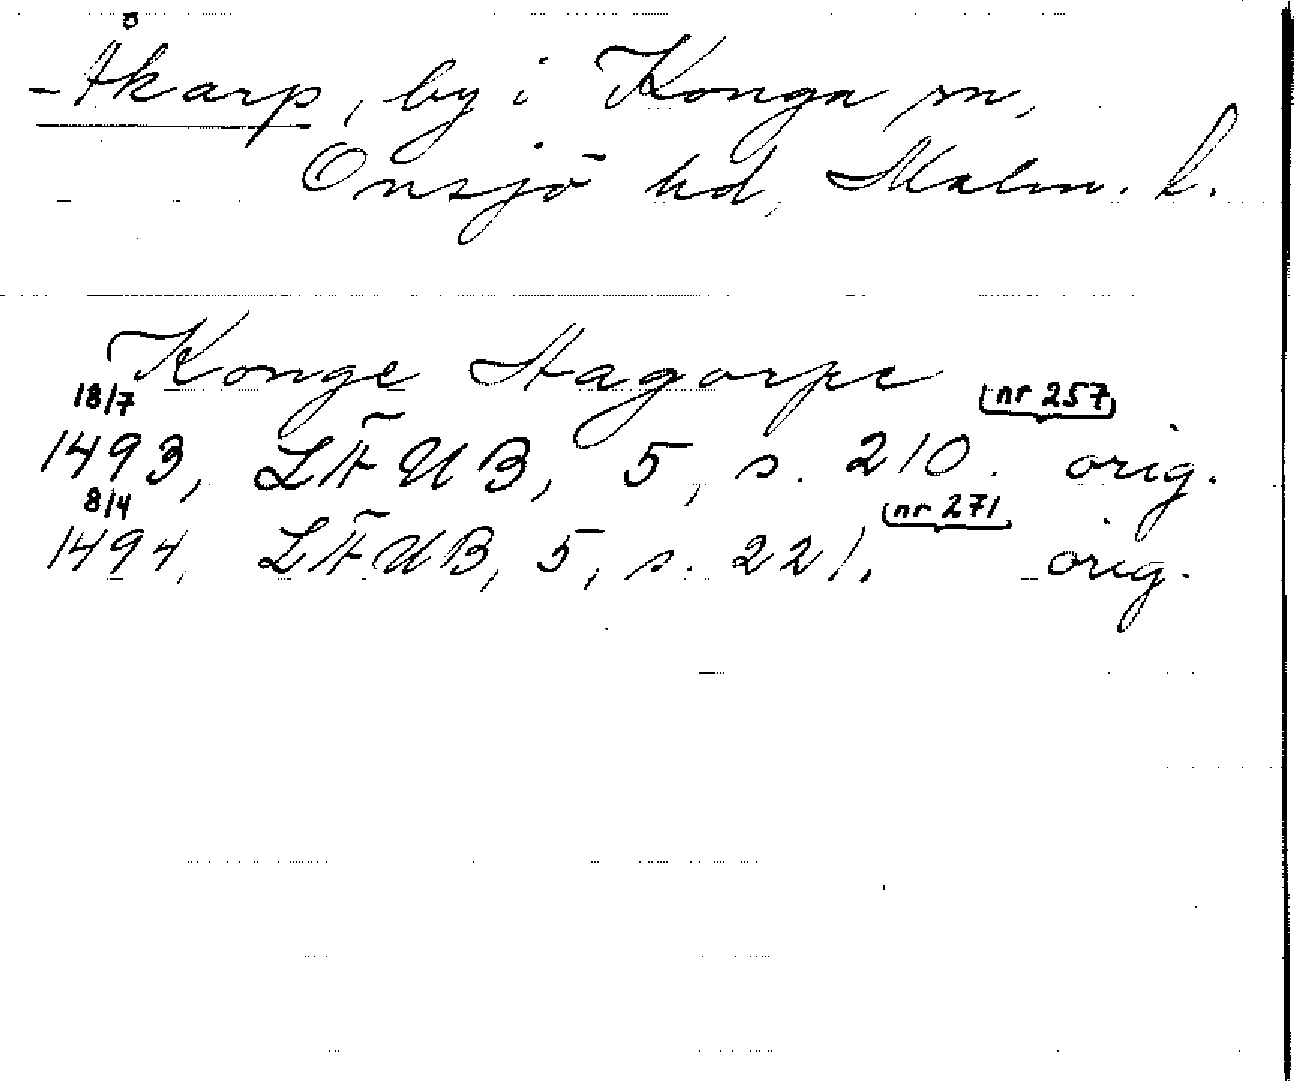 -Åkarp, by i Konga sn,
Onsjö hd, Malm. l.
Konge Hagorpe
18/7
1493, LÄUB, 5, s. 210. nr 257 orig.
8/4
1494, LÄUB, 5, s. 221. nr 271 orig.